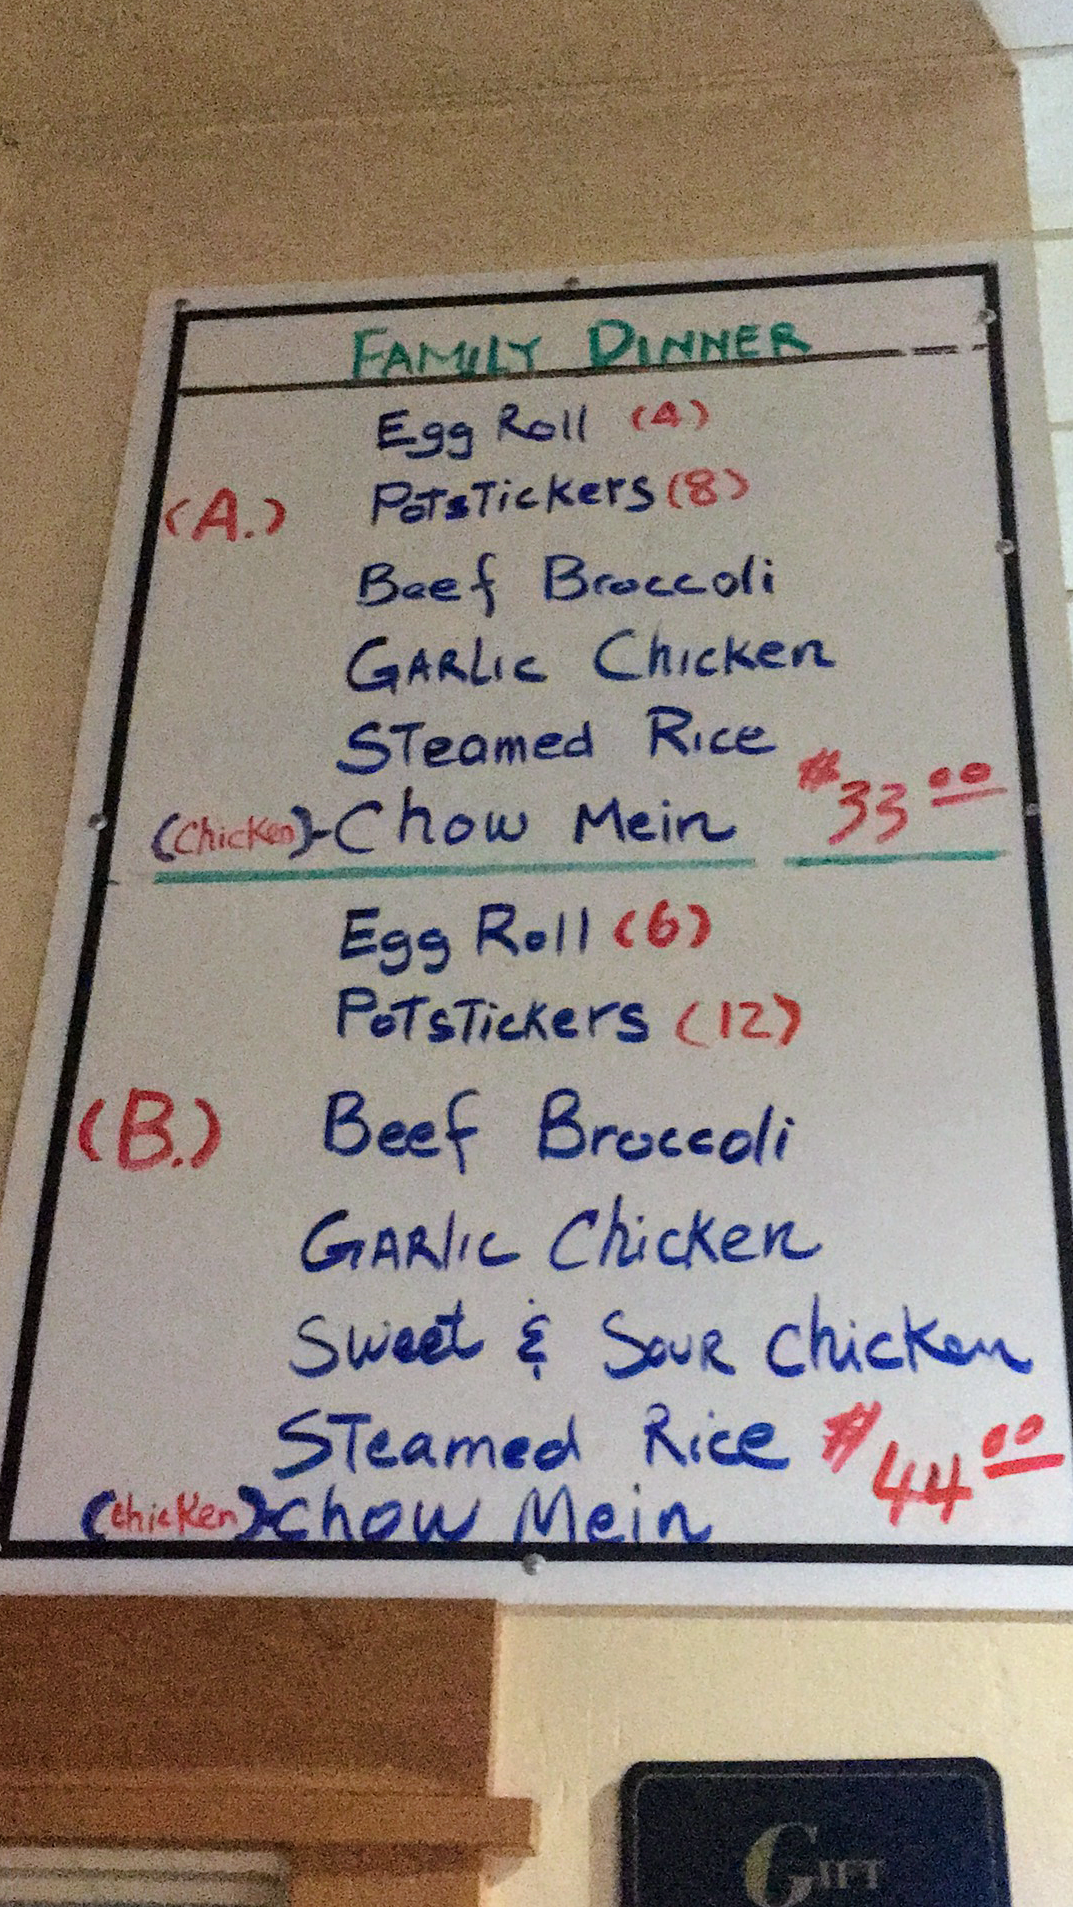 FAMILY DINNER
Egg Roll (4)
(A.) PotsTickers (8)
Beef Broccoli
GARLIC Chicken
STeamed Rice
(Chicken)-Chow Mein $33.00
Egg Roll (6)
PotsTickers (12)
(B.) Beef Broccoli
GARlic Chicken
Sweet & Sour Chicken
STeamed Rice $44.00
(chicken)-Chow Mein
GIFT